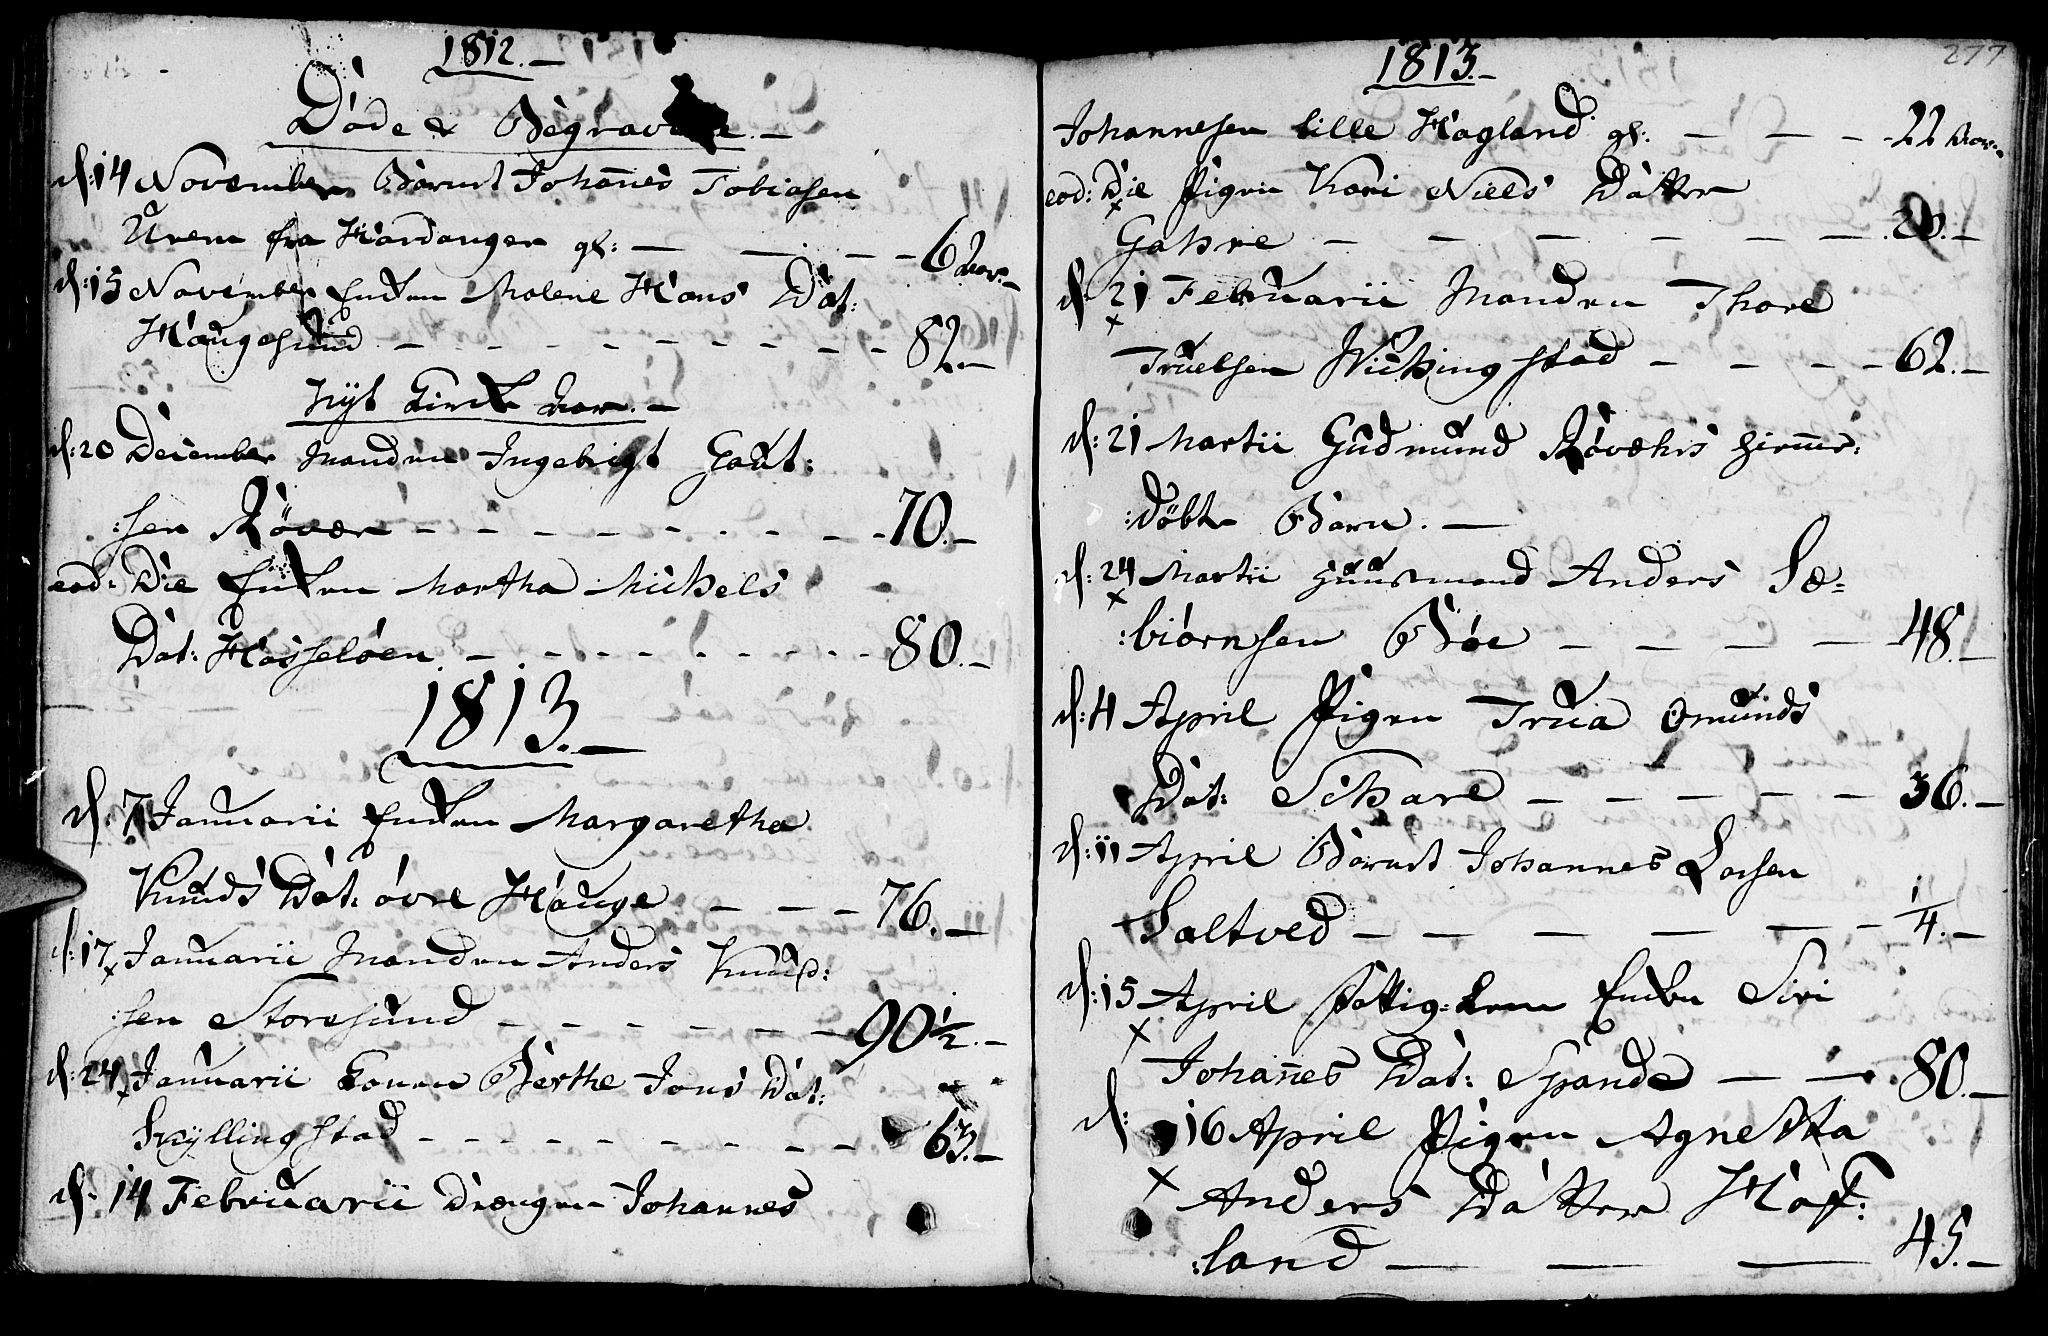 1812.-
Døde & Begravede.-
d: 14 November Barnet Johanes Tobiasen
Urem fra Hardanger gl: - - - 6 Aar.-
d: 15 November Enken Malene Hans Dat:
Haugesund - - - - - - - - - 82.-
Nyt Kirke Aar.-
d: 20 December Manden Ingebrigt Gaut:
:sen Røvær - - - - - - - - - 70.-
eod: Die Enken Martha Michels
Dat: Hasseløen. - - - - - - - - 80.-
1813.-
d: 7 Januarii Enken Margaretha
Knuds Dat: øvre Hauge - - - 76.-
d: 17 Januarii Manden Anders Knud:
x
:sen Storesund - - - - - - - 90 1/2.-
d: 24 Januarii Konen Berthe Jons Dat:
x
Skyllingstad - - - - - - - - 63.-
d: 14 Februarii Drengen Johannes
1813.-
277
Johannesen lille Hagland gl: - - - 22 Aar.-
eod: Die Pigen Kari Niels Datter
x
Gahre - - - - - - - 20.-
d: 21 Februarii Manden Thore
x
Truelsen Wichingstad - - - - 62.-
d: 21 Martii Gudmund Røvæhrs hiemme:
:døbte Barn. -
d: 24 Martii Huusmand Anders Sæ=
x
:biørnsen Bøe - - - - 48.-
d: 4 April Pigen Trua Omunds
Dat: Schare - - - - - - 36.-
d: 11 April Barnet Johannes Larsen
Saltved - - - - - - 1/4.-
d: 15 April Fattig-Lem Enken Siri
x
Johanes Dat: Spande - - 80.-
d: 16 April Pigen Agnetha
x
Anders Datter Haf:
:land - - - 45.-